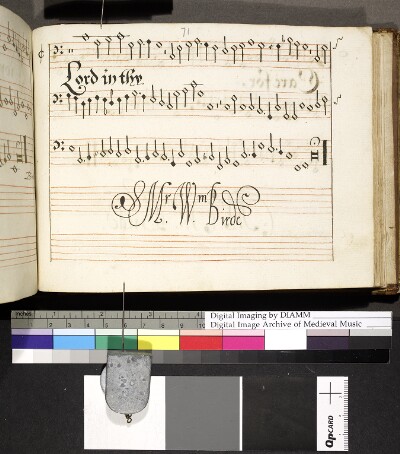 71
Lord in thy
Mr. Wm Birde
inches 1 2 3 4
1 2 3 4 5 6 7 8 9 10
Digital Imaging by DIAMM
Digital Image Archive of Medieval Music
QPCARD